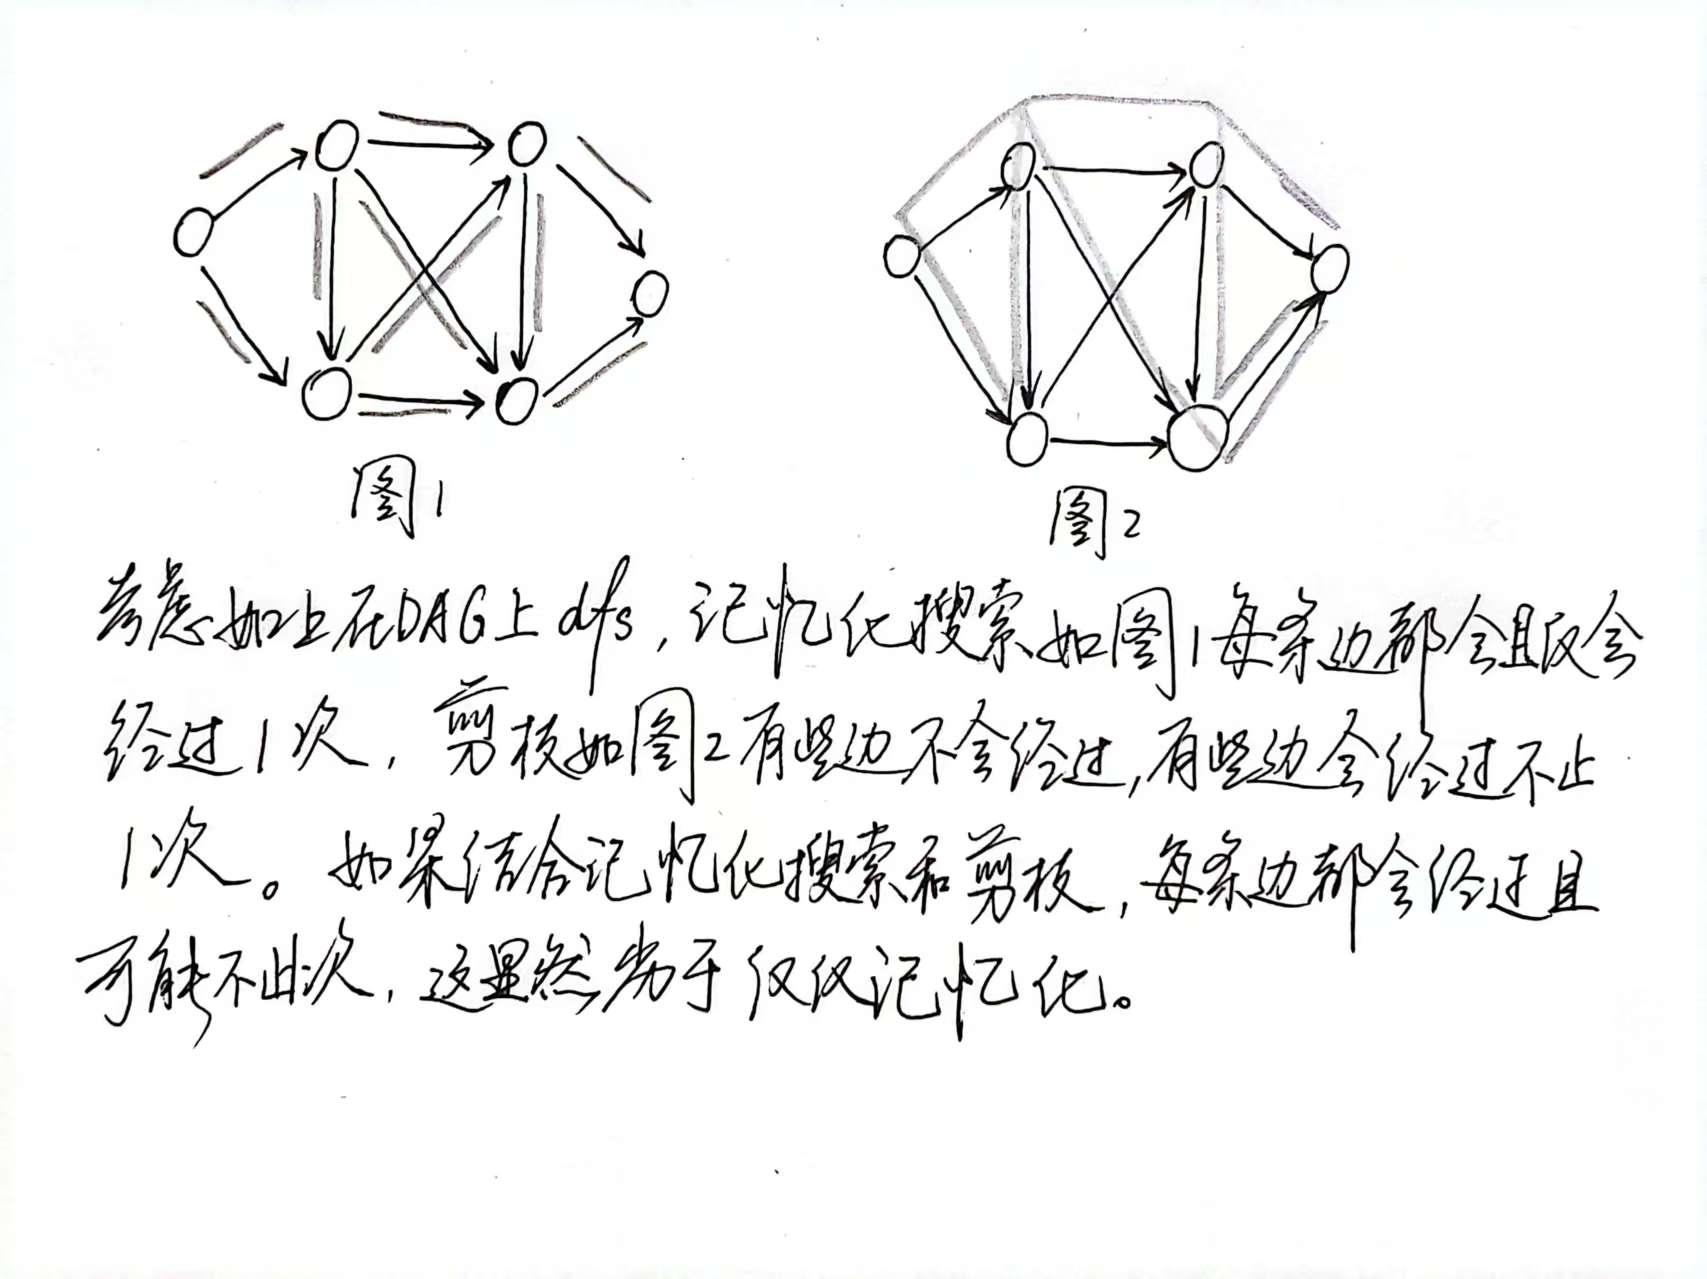 图1
图2
考虑如上在DAG上dfs,记忆化搜索如图1每条边都会且仅会
经过1次,剪枝如图2有些边不会经过,有些边会经过不止
1次。如果结合记忆化搜索和剪枝,每条边都会经过且
可能不止1次,这显然劣于仅仅记忆化。